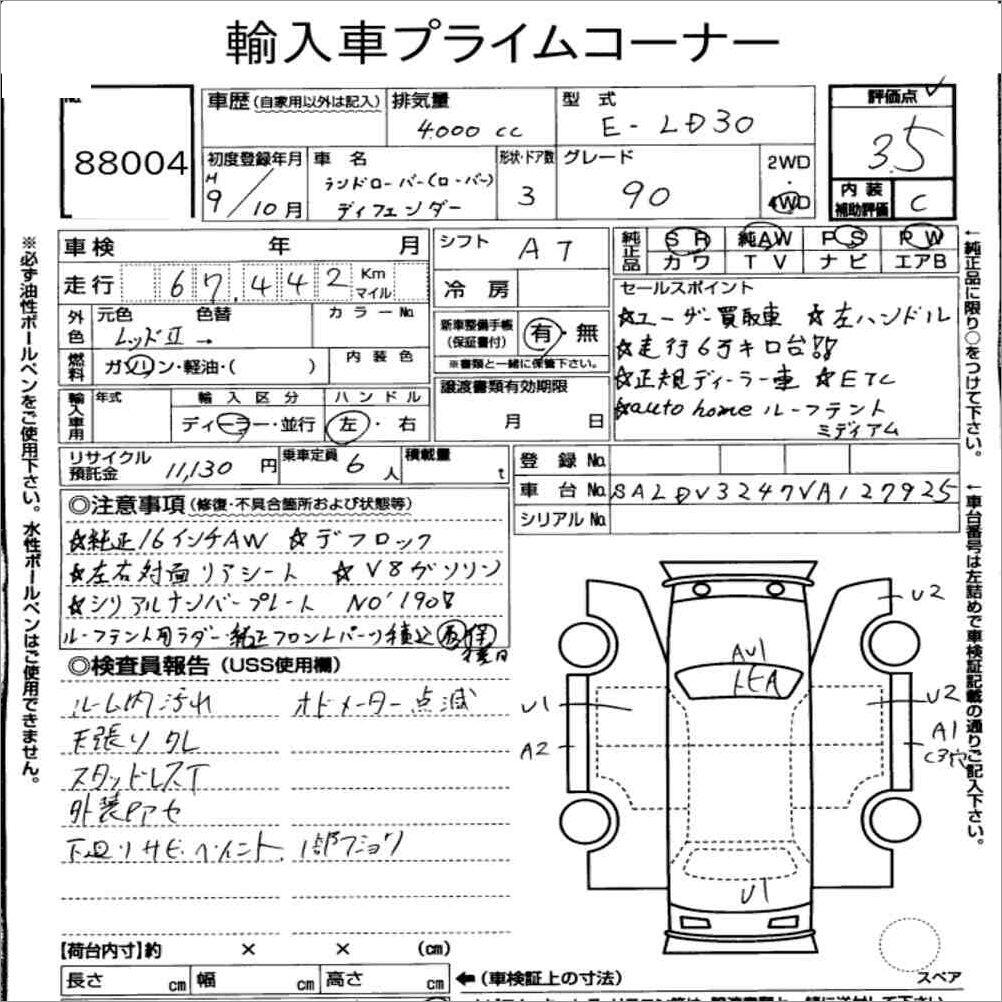 輸入車プライムコーナー
88004
車歴(自家用以外は記入)
排気量
4.000 cc
型 式
E-LD30
評価点
3.5
内装
補助評価
C
初度登録年月
H
9/10月
車 名
ランドローバー(ローバー)
ディフェンダー
形状・ドア数
3
グレード
90
2WD
・
4WD
車検 年 月
走行 67.442 Km
マイル
シフト
AT
純正品
SR 純AW PS PW
カワ TV ナビ エアB
冷房
外色
元色 色替
レッドⅡ →
カラーNo
燃料
ガソリン・軽油・( )
内装色
新車整備手帳
(保証書付)
有・無
※書類と一緒に保管下さい。
輸入車用
年式
輸入区分
ディーラー・並行
ハンドル
左・右
譲渡書類有効期限
月 日
セールスポイント
☆ユーザー買取車 ☆左ハンドル
☆走行6万キロ台!!
☆正規ディーラー車 ☆ETC
☆auto home ルーフテント
ミディアム
リサイクル
預託金
11,130 円
乗車定員
6人
積載量
t
登録No.
車台No.
SALDV3247VA127925
シリアルNo.
◎注意事項(修復・不具合箇所および状態等)
☆純正16インチAW ☆デフロック
☆左右対面リアシート ☆V8ガソリン
☆シリアルナンバープレート NO'1908
ルーフテント用ラダー・純正フロントパーツ積込
◎検査員報告(USS使用欄)
ルーム内汚れ オドメーター点滅
天張りタレ
スタッドレスT
外装Pアセ
下回りサビ・ペイント、1部フション
【荷台内寸】約 × × (cm)
長さ cm 幅 cm 高さ cm
←(車検証上の寸法)
U2
AU1
トビA
U1
U2
A2
A1
U1
スペア
※必ず油性ボールペンをご使用下さい。水性ボールペンはご使用できません。
←純正品に限り○をつけて下さい。
←車台番号は左詰めで車検証記載の通りご記入下さい。